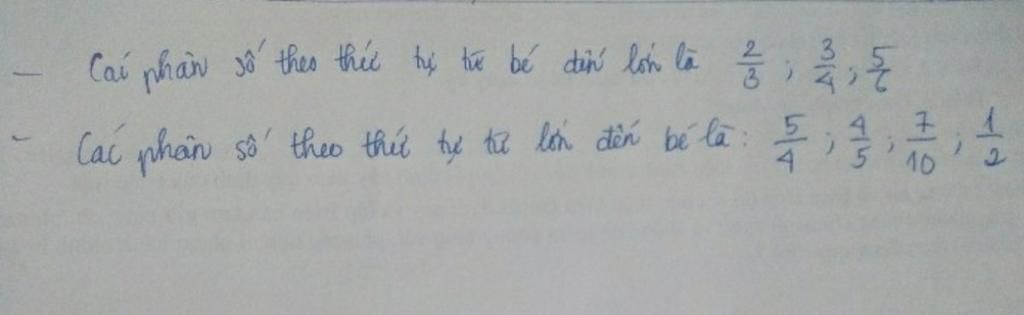 - Các phân số theo thứ tự từ bé đến lớn là 2/3 ; 3/4 ; 5/6
- Các phân số theo thứ tự từ lớn đến bé là: 5/4 ; 4/5 ; 7/10 ; 1/2